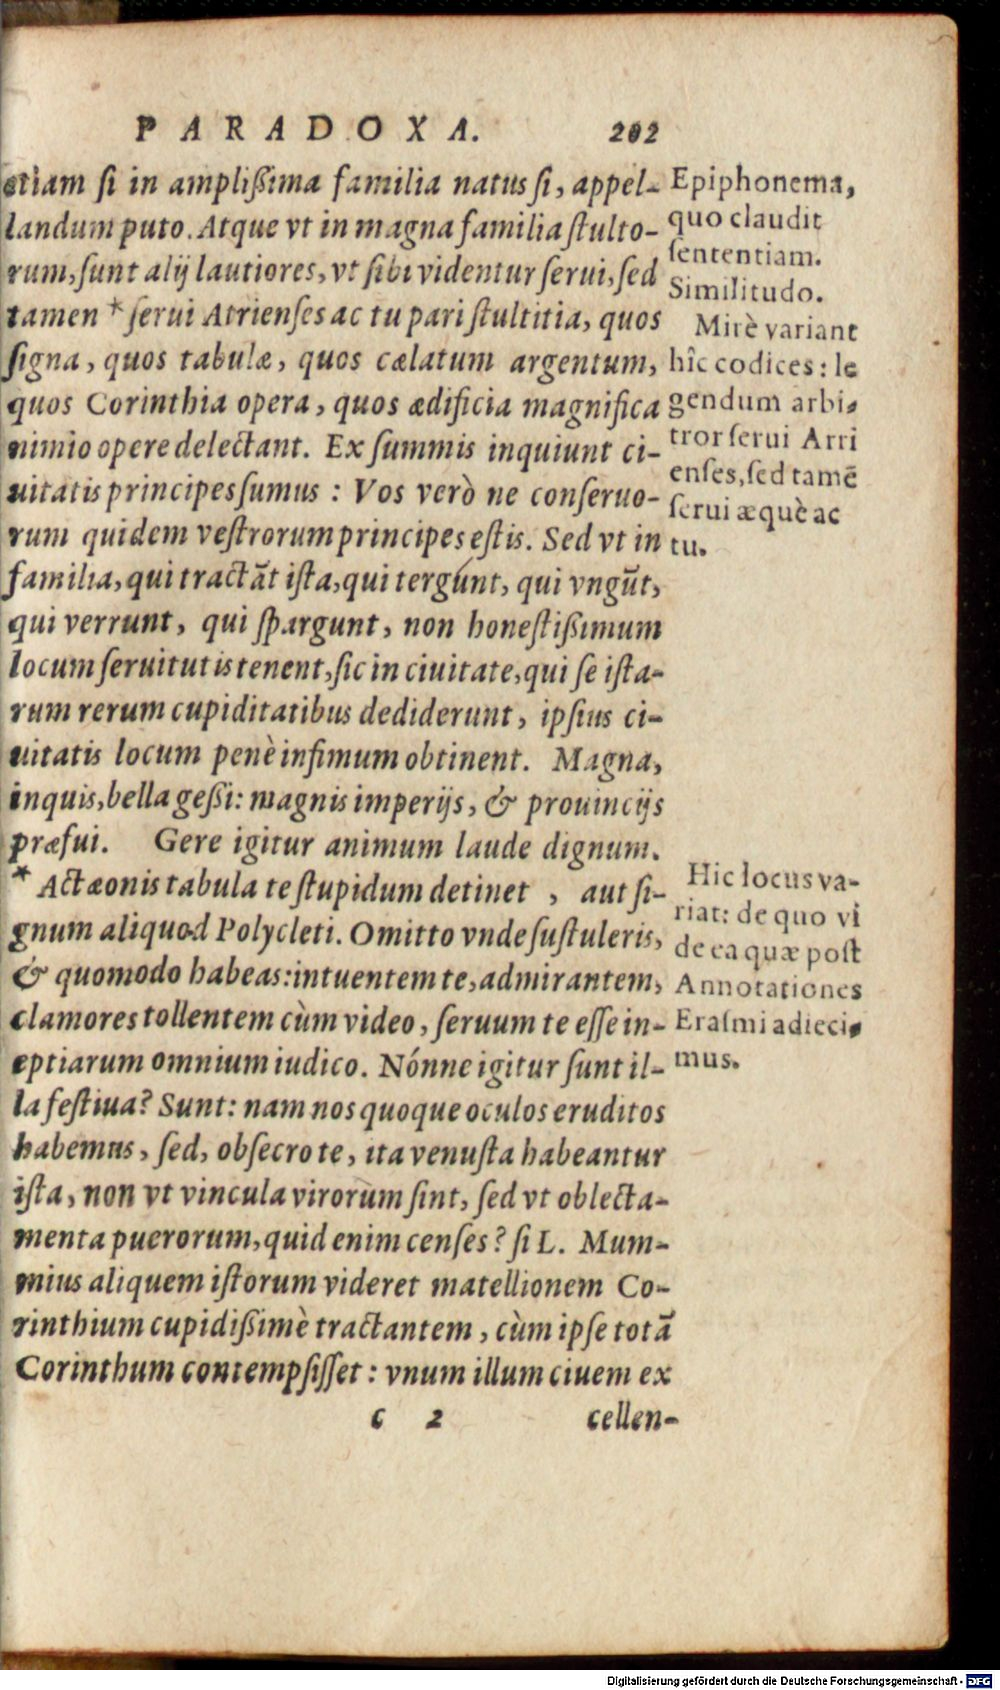 PARADOXA. 202
etiam si in amplißima familia natus si, appel-
landum puto. Atque vt in magna familia stulto-
rum, sunt alij lautiores, vt sibi videntur serui, sed
tamen * serui Atrienses ac tu pari stultitia, quos
signa, quos tabulæ, quos cælatum argentum,
quos Corinthia opera, quos ædificia magnifica
nimio opere delectant. Ex summis inquiunt ci-
uitatis principes sumus : Vos verò ne conseruo-
rum quidem vestrorum principes estis. Sed vt in
familia, qui tractāt ista, qui tergunt, qui vngūt,
qui verrunt, qui spargunt, non honestißimum
locum seruitutis tenent, sic in ciuitate, qui se ista-
rum rerum cupiditatibus dediderunt, ipsius ci-
uitatis locum penè infimum obtinent. Magna,
inquis, bella geßi: magnis imperijs, & prouincijs
præfui. Gere igitur animum laude dignum.
* Actæonis tabula te stupidum detinet , aut si-
gnum aliquod Polycleti. Omitto vnde sustuleris,
& quomodo habeas: intuentem te, admirantem,
clamores tollentem cùm video, seruum te esse in-
eptiarum omnium iudico. Nónne igitur sunt il-
la festiua? Sunt: nam nos quoque oculos eruditos
habemus, sed, obsecro te, ita venusta habeantur
ista, non vt vincula virorum sint, sed vt oblecta-
menta puerorum, quid enim censes? si L. Mum-
mius aliquem istorum videret matellionem Co-
rinthium cupidißimè tractantem, cùm ipse totā
Corinthum contempsisset : vnum illum ciuem ex
c 2 cellen-
Epiphonema,
quo claudit
sententiam.
Similitudo.
Mirè variant
hîc codices: le
gendum arbi-
tror serui Arri
enses, sed tamē
serui æquè ac
tu.
Hic locus va-
riat: de quo vi
de ea quæ post
Annotationes
Erasmi adieci-
mus.
Digitalisierung gefördert durch die Deutsche Forschungsgemeinschaft - DFG